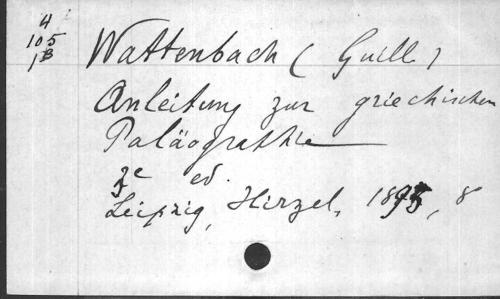 4
105
1B
Wattenbach (Guill)
Anleitung zur griechischen
Paläographie
3e ed.
Leipzig, Hirzel, 1895, 8